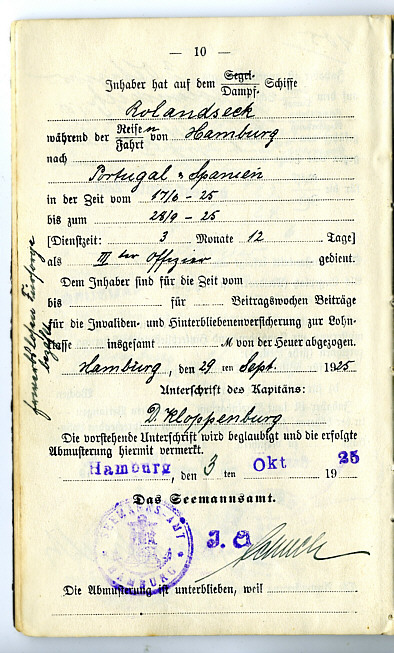 — 10 —
Inhaber hat auf dem Segel-/Dampf- Schiffe
Rolandseck
während der Reisen/Fahrt von Hamburg
nach
Portugal u Spanien
in der Zeit vom 17/6 - 25
bis zum 28/9 - 25
[Dienstzeit: 3 Monate 12 Tage]
als III ter Offizier gedient.
Dem Inhaber sind für die Zeit vom
bis für Beitragswochen Beiträge
für die Invaliden- und Hinterbliebenenversicherung zur Lohn-
klasse insgesamt M von der Heuer abgezogen.
Hamburg, den 29 ten Sept. 1925
Unterschrift des Kapitäns:
D Kloppenburg
Die vorstehende Unterschrift wird beglaubigt und die erfolgte
Abmusterung hiermit vermerkt.
Hamburg, den 3 ten Okt 1925
Das Seemannsamt.
SEEMANNS-AMT
HAMBURG
J. A.
Die Abmusterung ist unterblieben, weil
Fürsorge